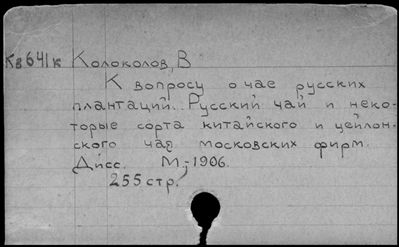 Кв641к Колоколов, В
К вопросу о чае русских
плантаций. Русский чай и неко-
торые сорта китайского и цейлон-
ского чая московских фирм.
Дисс. М-1906.
255 стр.